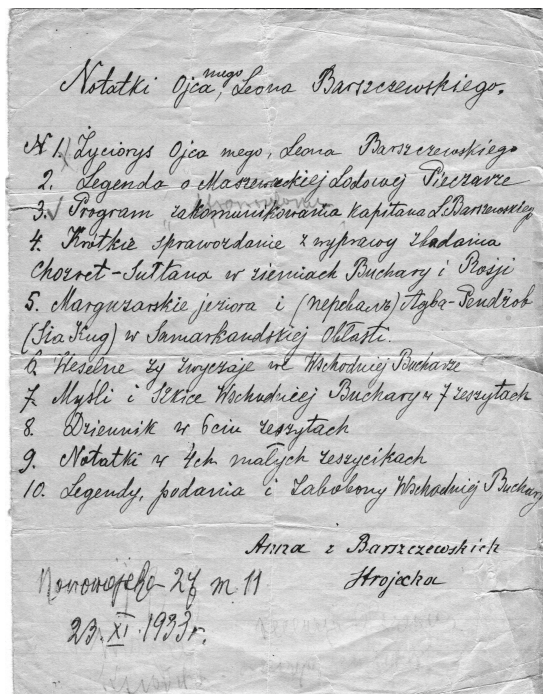 Notatki Ojca mego, Leona Barszczewskiego.
N 1. Życiorys Ojca mego, Leona Barszczewskiego
2. Legenda o Maszewackiej Lodowej Pieczarze
3. Program zakomunikowania kapitana L. Barszewskiego
4. Krótkie sprawozdanie z wyprawy zbadania
Chozret-Sułtana w ziemiach Buchary i Rosji
5. Marguzarskie jeziora i (перевалъ) Agba-Pendżob
(Sia Kug) w Samarkandskiej Obłasti.
6. Weselne zy zwyczaje we Wschodniej Bucharze
7. Myśli i Szkice Wschodniej Buchary w 7 zeszytach
8. Dziennik w 6ciu zeszytach
9. Notatki w 4ch małych zeszycikach
10. Legendy, podania i zabobony Wschodniej Buchary
Anna z Barszczewskich
Strojecka
27 m. 11
23. XI. 1933 r.